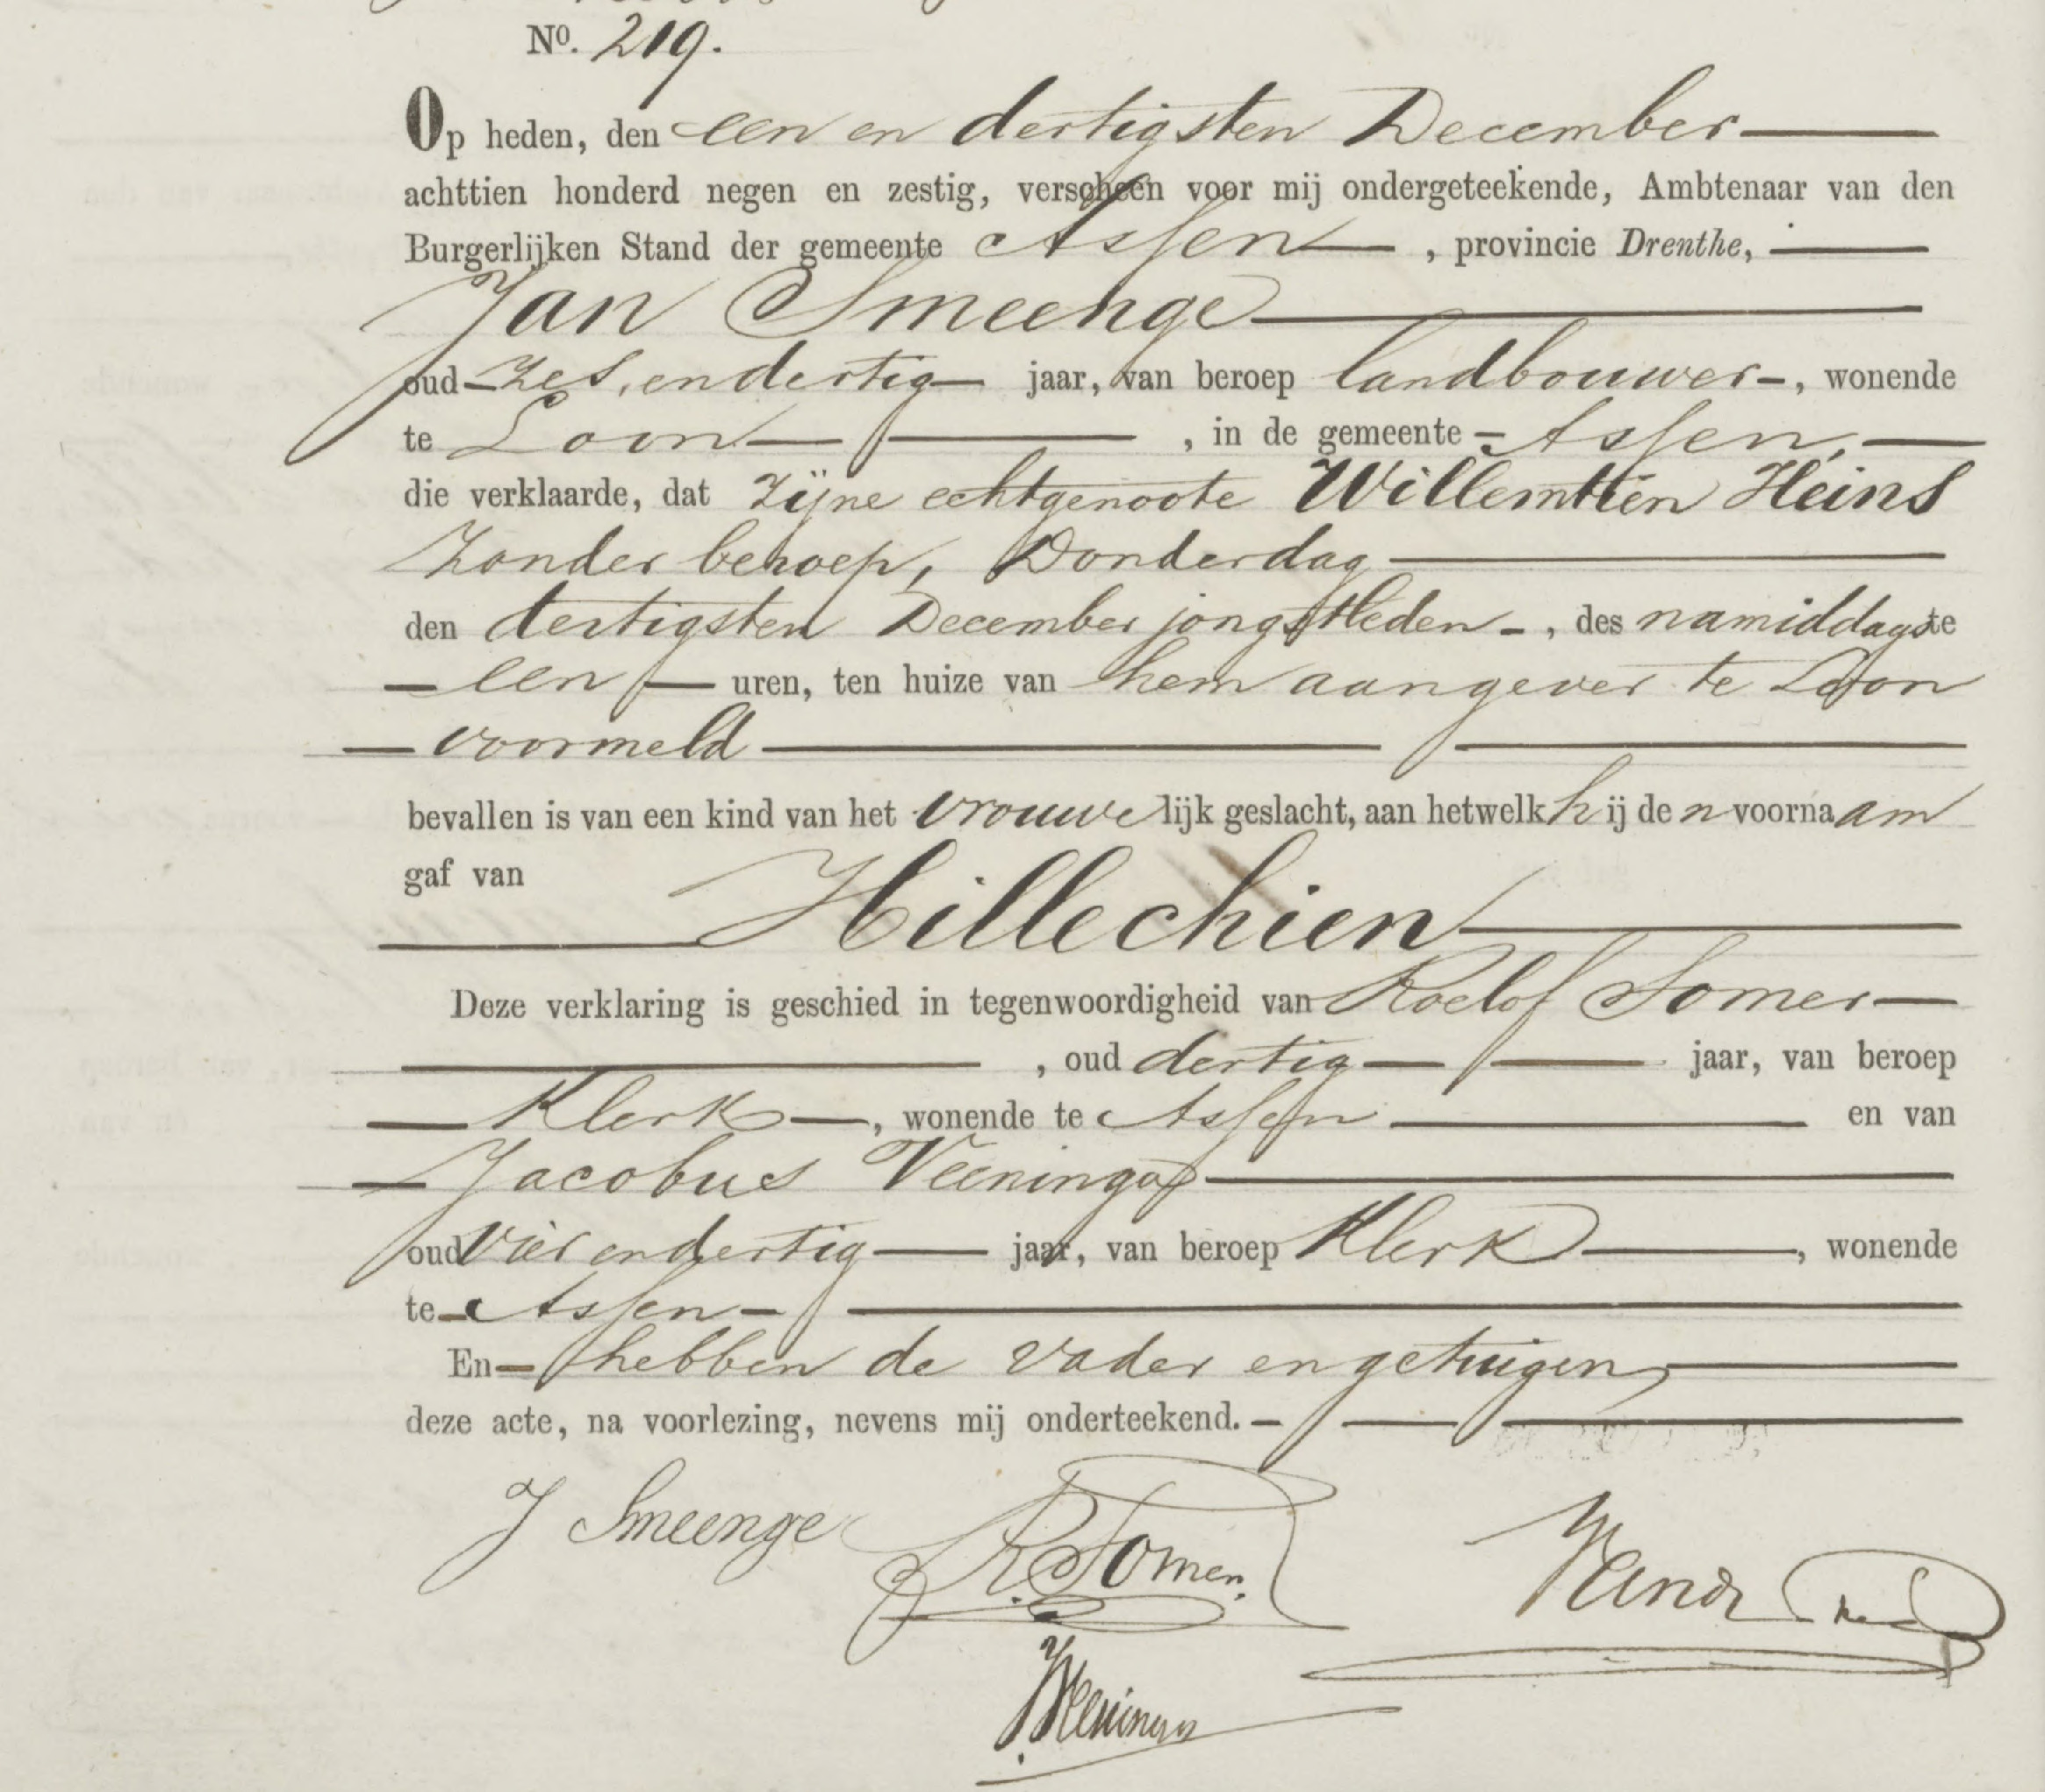 No. 219.
Op heden, den een en dertigsten December
achttien honderd negen en zestig, verscheen voor mij ondergeteekende, Ambtenaar van den
Burgerlijken Stand der gemeente Assen, provincie Drenthe,
Jan Smeenge
oud zes en dertig jaar, van beroep landbouwer, wonende
te Loon, in de gemeente Assen,
die verklaarde, dat zijne echtgenoote Willemtien Heins
zonder beroep, Donderdag
den dertigsten December jongstleden, des namiddags te
een uren, ten huize van hem aangever te Loon
voormeld
bevallen is van een kind van het vrouwelijk geslacht, aan hetwelk hij den voornaam
gaf van
Hillechien
Deze verklaring is geschied in tegenwoordigheid van Roelof Somer
, oud dertig jaar, van beroep
Klerk, wonende te Assen en van
Jacobus Veeninga
oud vier en dertig jaar, van beroep Klerk, wonende
te Assen
En hebben de vader en getuigen,
deze acte, na voorlezing, nevens mij onderteekend.
J Smeenge
R. Somer.
J. Veeninga